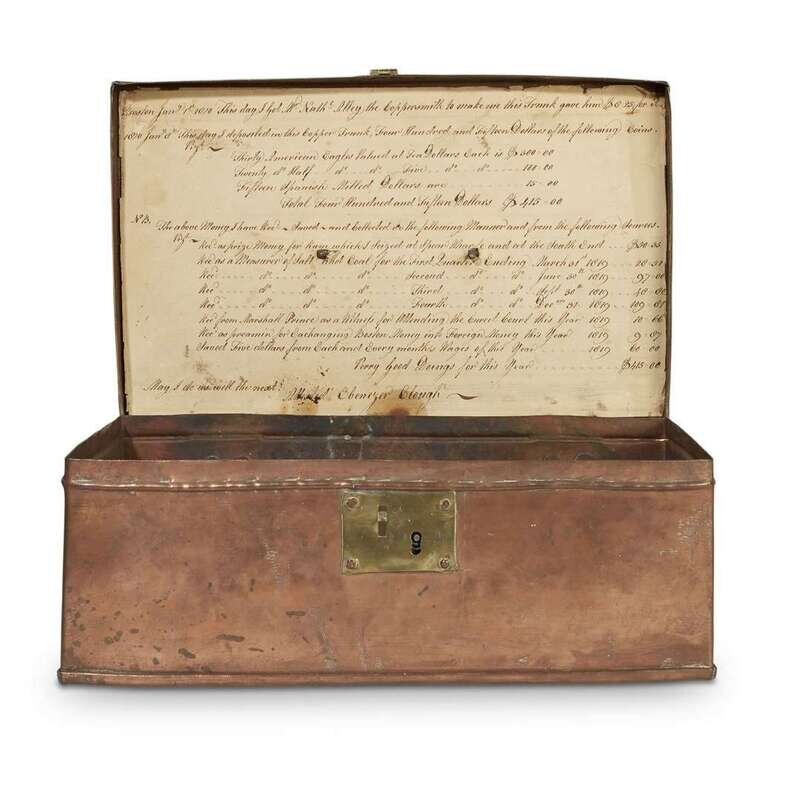 Boston Jany 1st 1820 This day I Got Mr Nathl Alley the Coppersmith to make me this Trunk gave him $6.25 for it
1820 Jany 8th This day I deposited in this Copper Trunk, Four Hundred and Fifteen Dollars of the following Coins.
Vizt
Thirty American Eagles Valued at Ten Dollars Each is $300-00
Twenty do Half do Five do do 100-00
Fifteen Spanish Milled Dollars are 15-00
Total Four Hundred and Fifteen Dollars $415-00
N.B. The above Money I have Recd Saved and Collected in the following Manner and from the following Sources.
Vizt
Recd as prize Money for Rum which I Seized at Spear Wharfe and at the South End
Recd as a Measurer of Salt and Coal for the First Quarter Ending March 31st 1819
Recd do do Second do do June 30th 1819 97-00
Recd do do Third do do Sept 30th 1819
Recd do do Fourth do do Decmr 31 1819
Recd from Marshall Prince as a Witness for Attending the Court this Year 1819
Recd as preamim for Exchanging Boston Money into Foreign Money this Year 1819
Saved Five dollars from Each and Every months Wages of this Year 1819 60-00
Verry Good Doings for this Year $415-00
May I do as well the next
Ebenezer Clough